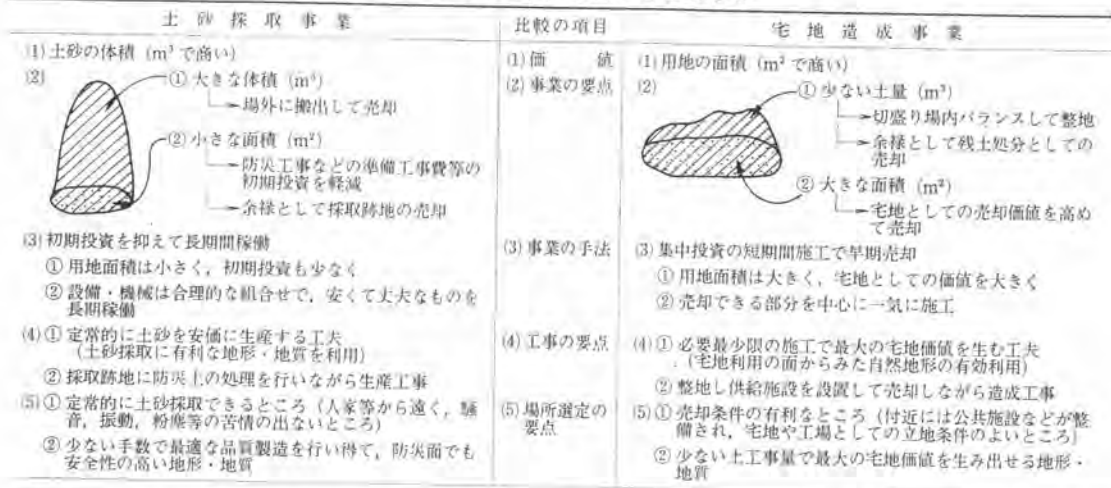 土砂採取事業
比較の項目
宅地造成事業
(1) 土砂の体積 (m³で商い)
(2)
① 大きな体積 (m³)
場外に搬出して売却
② 小さな面積 (m²)
防災工事などの準備工事費等の
初期投資を軽減
余禄として採取跡地の売却
(3) 初期投資を抑えて長期間稼働
① 用地面積は小さく，初期投資も少なく
② 設備・機械は合理的な組合せで，安くて丈夫なものを
長期稼働
(4) ① 定常的に土砂を安価に生産する工夫
(土砂採取に有利な地形・地質を利用)
② 採取跡地に防災上の処理を行いながら生産工事
(5) ① 定常的に土砂採取できるところ (人家等から遠く，騒
音，振動，粉塵等の苦情の出ないところ)
② 少ない手数で最適な品質製造を行い得て，防災面でも
安全性の高い地形・地質
(1) 価値
(2) 事業の要点
(3) 事業の手法
(4) 工事の要点
(5) 場所選定の
要点
(1) 用地の面積 (m²で商い)
(2)
① 少ない土量 (m³)
切盛り場内バランスして整地
余禄として残土処分としての
売却
② 大きな面積 (m²)
宅地としての売却価値を高め
て売却
(3) 集中投資の短期間施工で早期売却
① 用地面積は大きく，宅地としての価値を大きく
② 売却できる部分を中心に一気に施工
(4) ① 必要最少限の施工で最大の宅地価値を生む工夫
(宅地利用の面からみた自然地形の有効利用)
② 整地し供給施設を設置して売却しながら造成工事
(5) ① 売却条件の有利なところ (付近には公共施設などが整
備され，宅地や工場としての立地条件のよいところ)
② 少ない土工事量で最大の宅地価値を生み出せる地形・
地質